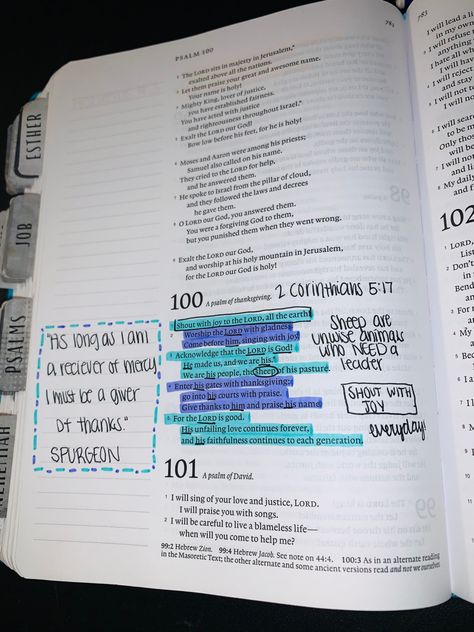 PSALM 100
781
² The LORD sits in majesty in Jerusalem,ᵃ
exalted above all the nations.
³ Let them praise your great and awesome name.
Your name is holy!
⁴ Mighty King, lover of justice,
you have established fairness.
You have acted with justice
and righteousness throughout Israel.ᵇ
⁵ Exalt the LORD our God!
Bow low before his feet, for he is holy!
⁶ Moses and Aaron were among his priests;
Samuel also called on his name.
They cried to the LORD for help,
and he answered them.
⁷ He spoke to Israel from the pillar of cloud,
and they followed the laws and decrees
he gave them.
⁸ O LORD our God, you answered them.
You were a forgiving God to them,
but you punished them when they went wrong.
⁹ Exalt the LORD our God,
and worship at his holy mountain in Jerusalem,
for the LORD our God is holy!
100 A psalm of thanksgiving.
2 corinthians 5:17
¹ Shout with joy to the LORD, all the earth!
² Worship the LORD with gladness.
Come before him, singing with joy.
³ Acknowledge that the LORD is God!
He made us, and we are his.ᵃ
We are his people, the sheep of his pasture.
⁴ Enter his gates with thanksgiving;
go into his courts with praise.
Give thanks to him and praise his name.
⁵ For the LORD is good.
His unfailing love continues forever,
and his faithfulness continues to each generation.
sheep are
unwise animals
who NEED a
leader
SHOUT WITH
JOY
everyday!
"As long as I am
a reciever of mercy,
I must be a giver
of thanks."
SPURGEON
101 A psalm of David.
¹ I will sing of your love and justice, LORD.
I will praise you with songs.
² I will be careful to live a blameless life—
when will you come to help me?
99:2 Hebrew Zion. 99:4 Hebrew Jacob. See note on 44:4. 100:3 As in an alternate reading
in the Masoretic Text; the other alternate and some ancient versions read and not we ourselves
ESTHER
JOB
PSALMS
783
I will lead a
in my own
³ I will refuse
anything
I hate all
I will reject
102